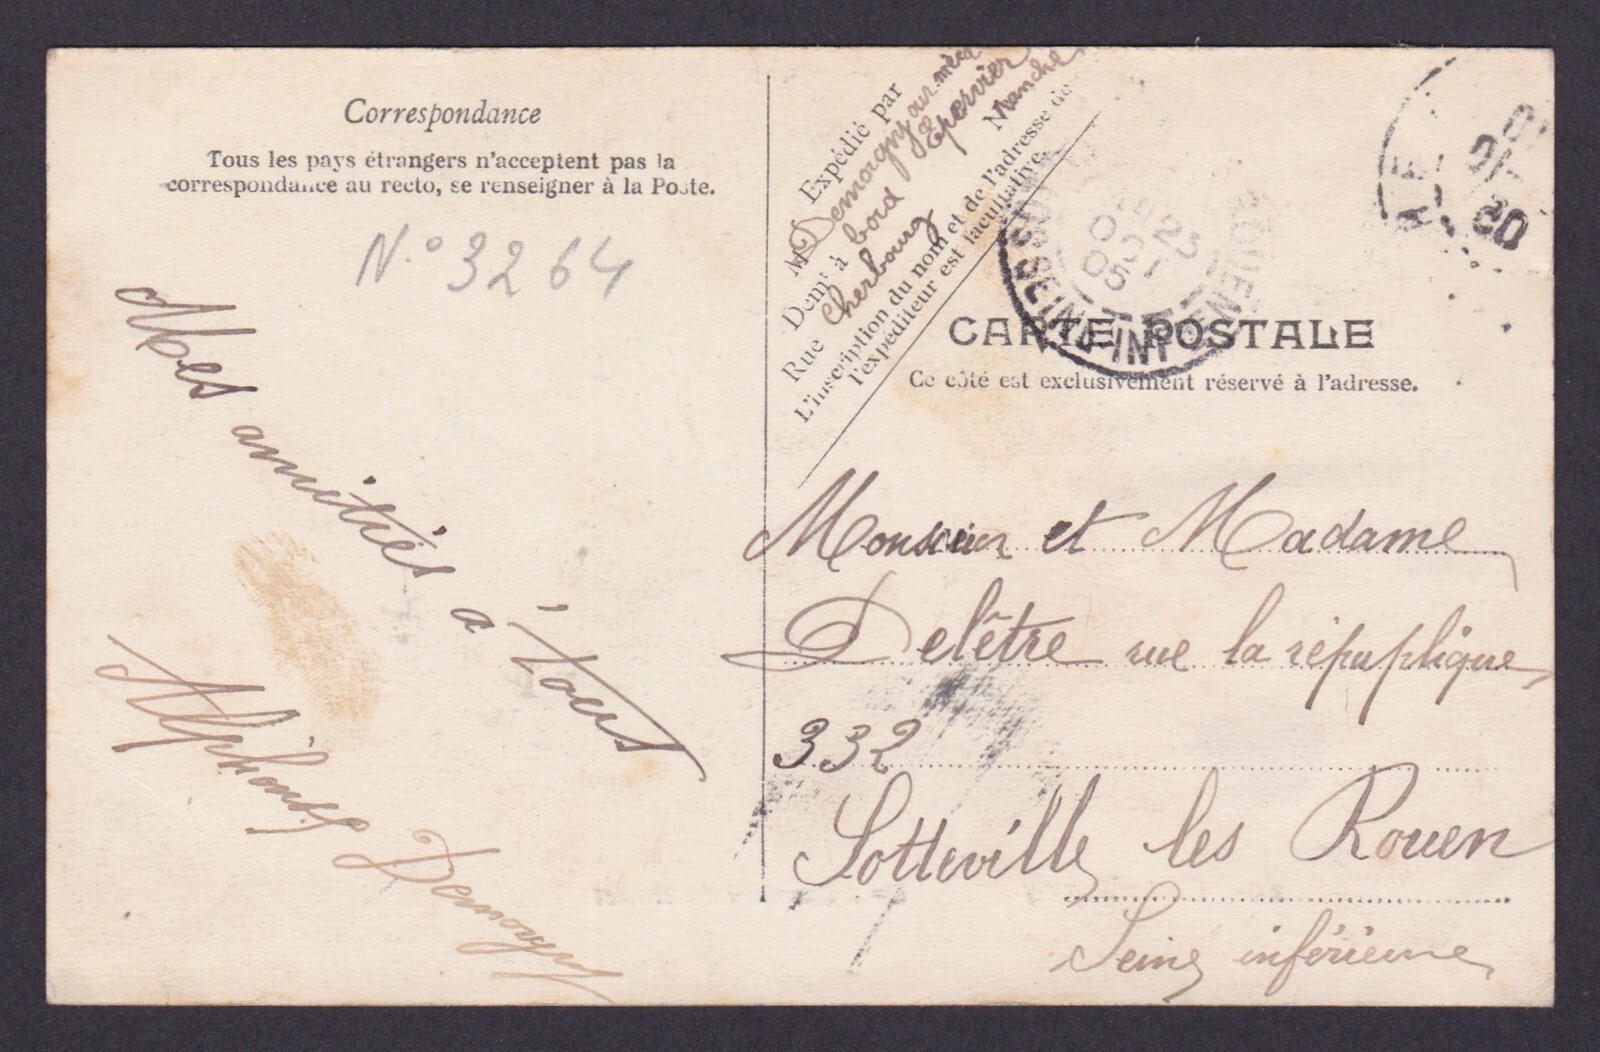 Correspondance
Tous les pays étrangers n'acceptent pas la
correspondance au recto, se renseigner à la Poste.
N° 3264
Mes amitiés à Tous
Alphonse Demogny
Expédié par
M Demogny
Demt à bord Epervier
Rue Cherbourg Manche
L'inscription du nom et de l'adresse de
l'expéditeur est facultative.
23
OCT
05
SEINE INFRE
CARTE POSTALE
Ce côté est exclusivement réservé à l'adresse.
Monsieur et Madame
Delêtre rue la répuplique
332
Sotteville les Rouen
Seine inférieure